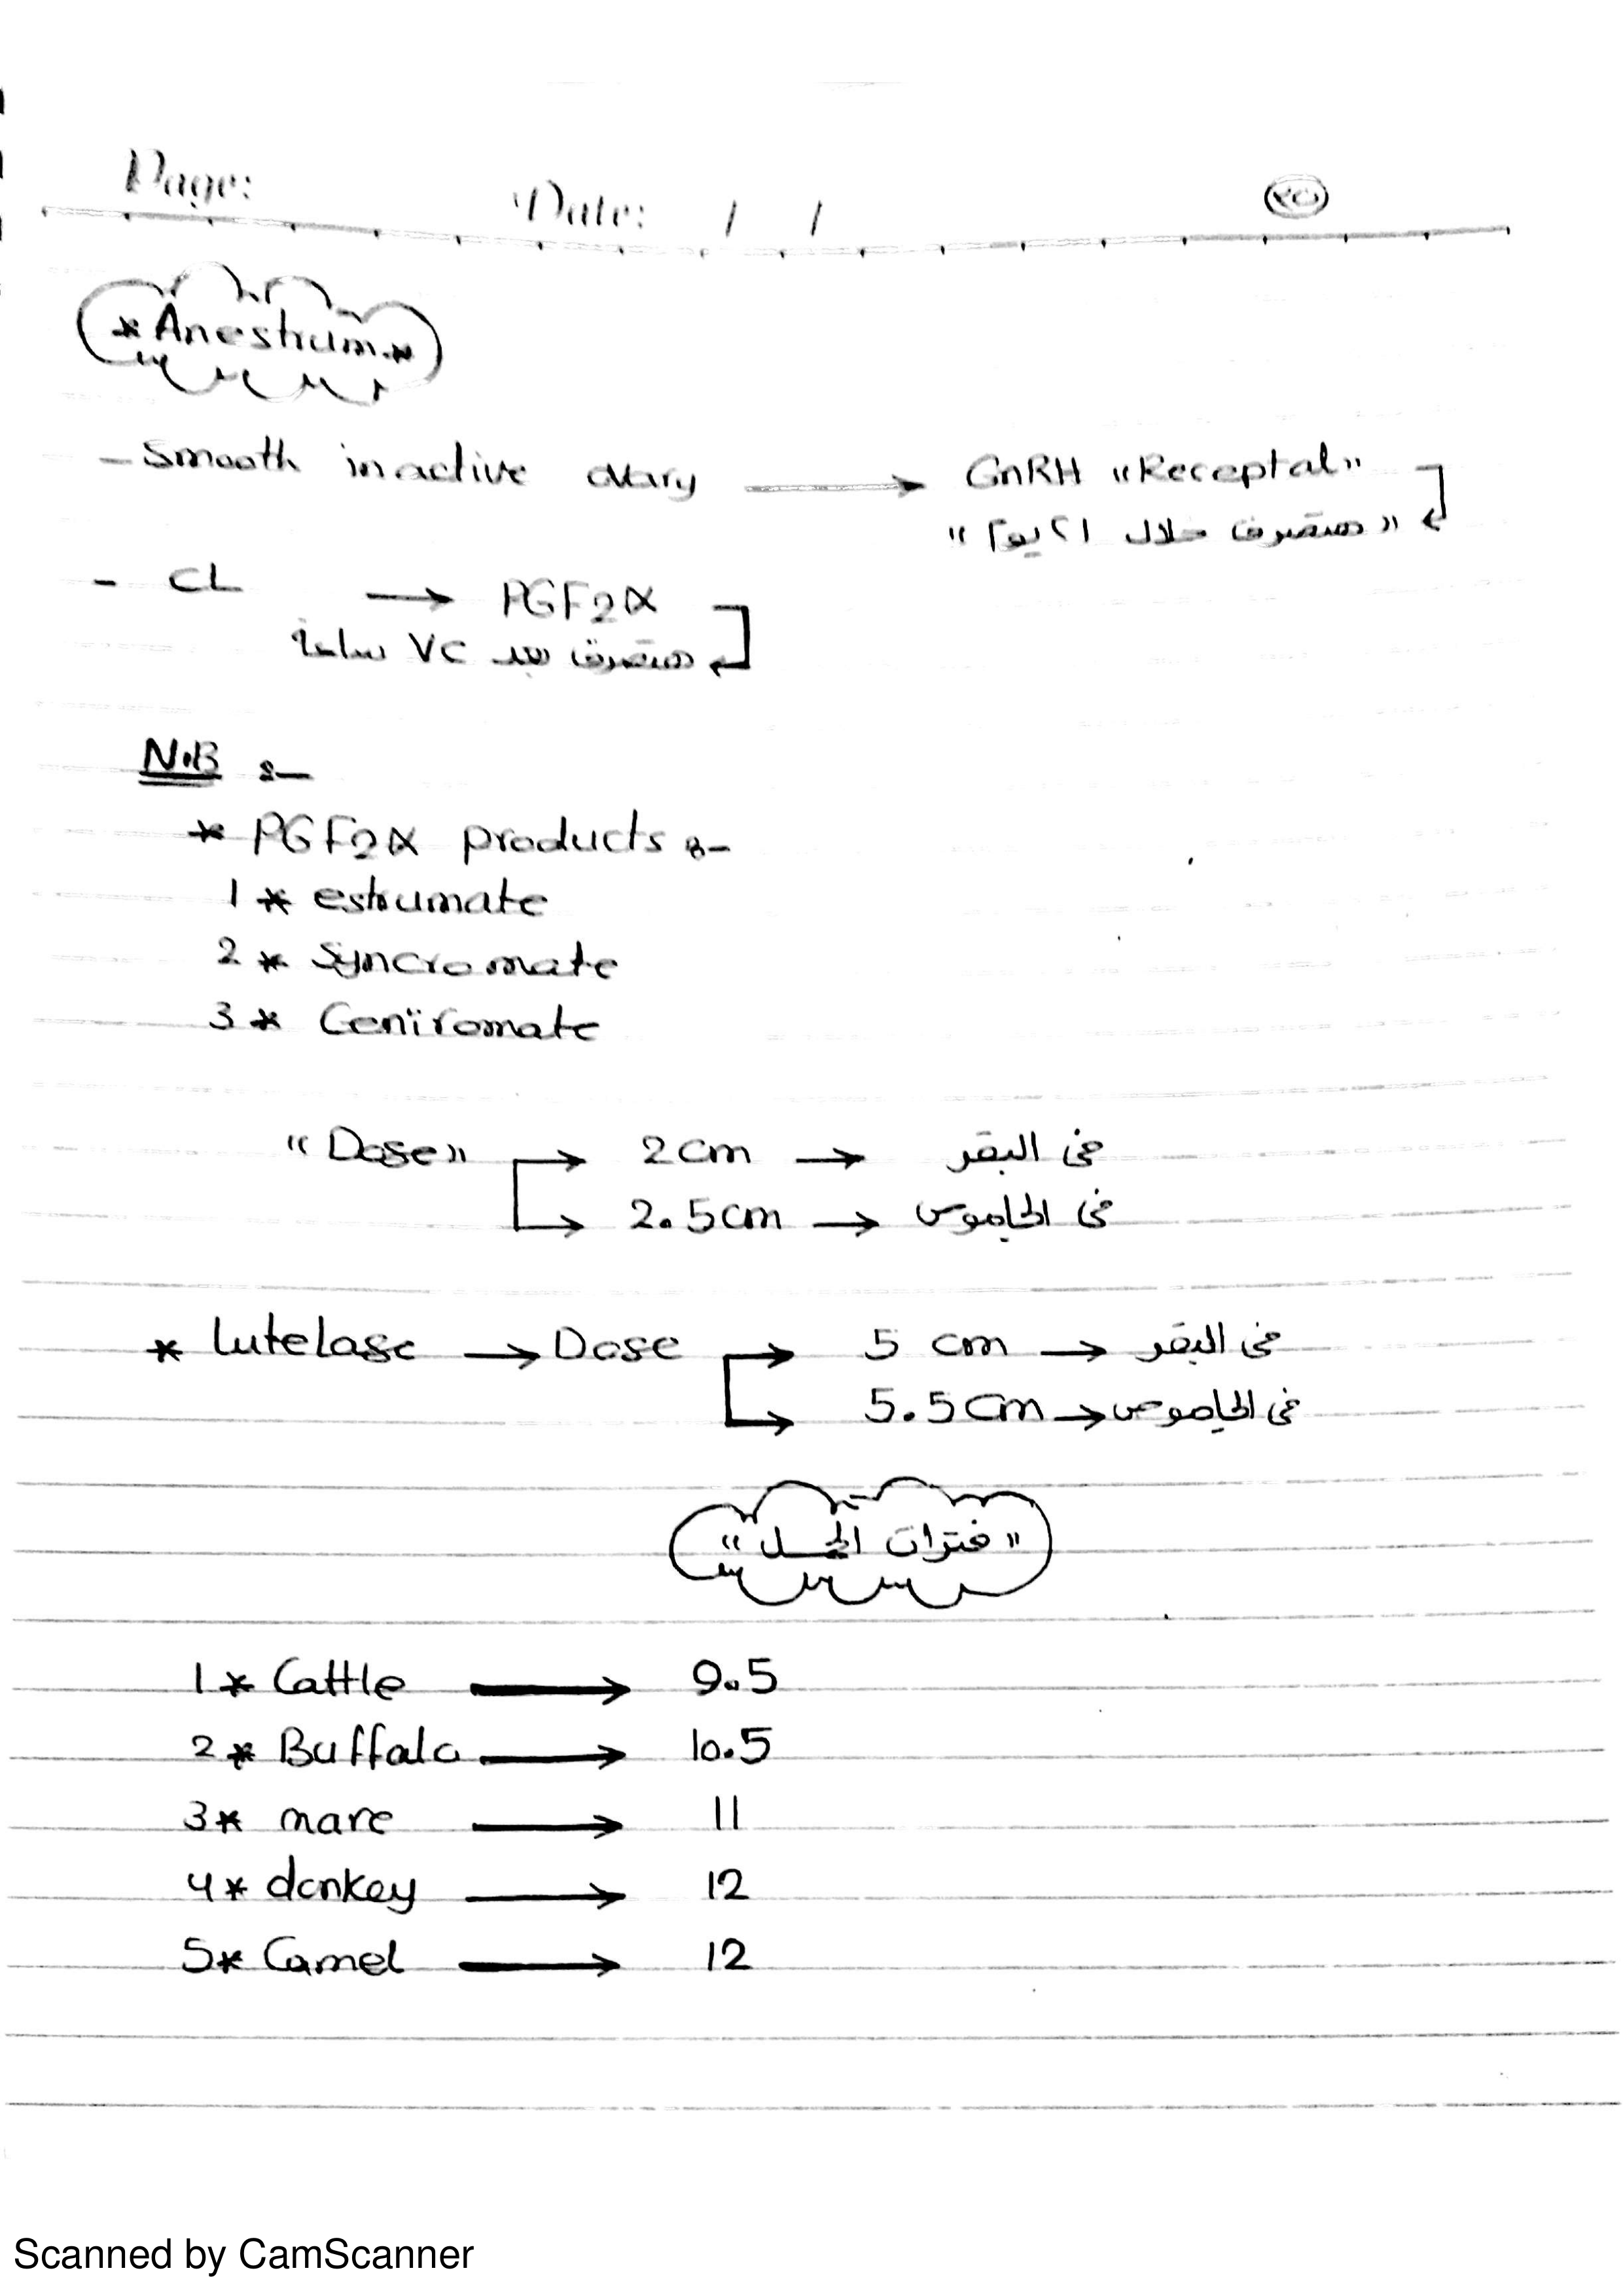 Page: Date: / /
* Anestrum *
- Smooth inactive ovary → GnRH "Receptal"
"هتصرف خلال ٢١ يوم"
- CL → PGF2α
هتصرف بعد ٧٢ ساعة
N.B :-
* PGF2α products :-
1* estrumate
2* Syncromate
3* Ceniromate
"Dose" → 2 cm → فى البقر
→ 2.5 cm → فى الجاموس
* lutelase → Dose → 5 cm → فى البقر
→ 5.5 cm → فى الجاموس
"فترات الحمل"
1* Cattle → 9.5
2* Buffalo → 10.5
3* mare → 11
4* donkey → 12
5* Camel → 12
Scanned by CamScanner